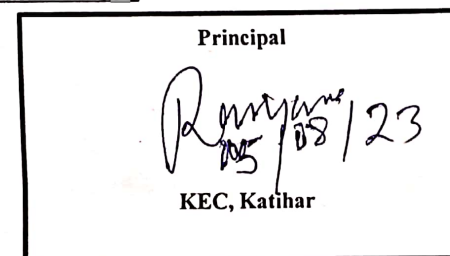 Principal
05/08/23
KEC, Katihar